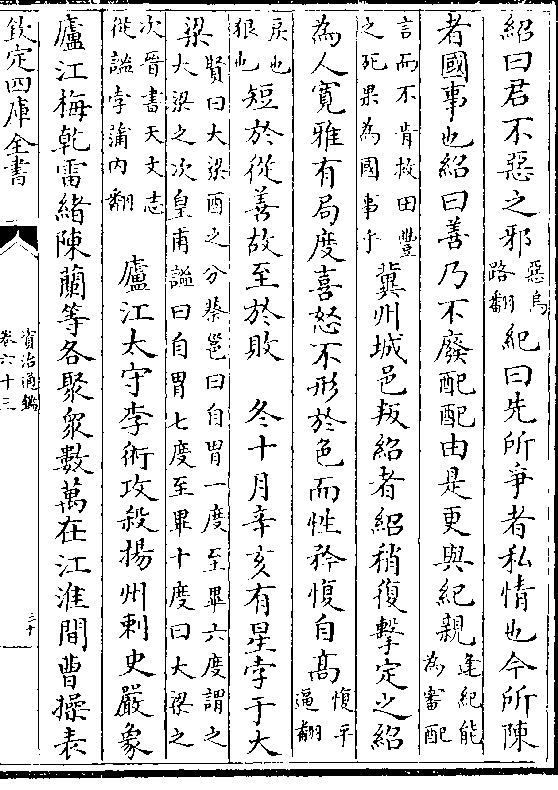 紹曰君不惡之邪惡烏路翻紀曰先所爭者私情也今所陳
者國事也紹曰善乃不廢配配由是更與紀親逢紀能為審配
言而不肯救田豐之死果為國事乎冀州城邑叛紹者紹稍復擊定之紹
為人寬雅有局度喜怒不形於色而性矜愎自高愎平逼翻
戾也狠也短於從善故至於敗 冬十月辛亥有星孛于大
梁賢曰大梁酉之分蔡邕曰自胃一度至畢六度謂之大梁之次皇甫謐曰自胃七度至畢十度曰大梁之
次晉書天文志從謐孛蒲內翻 廬江太守李術攻殺揚州刺史嚴象
廬江梅乾雷緒陳蘭等各聚衆數萬在江淮間曹操表
欽定四庫全書
資治通鑑
卷六十三
三十